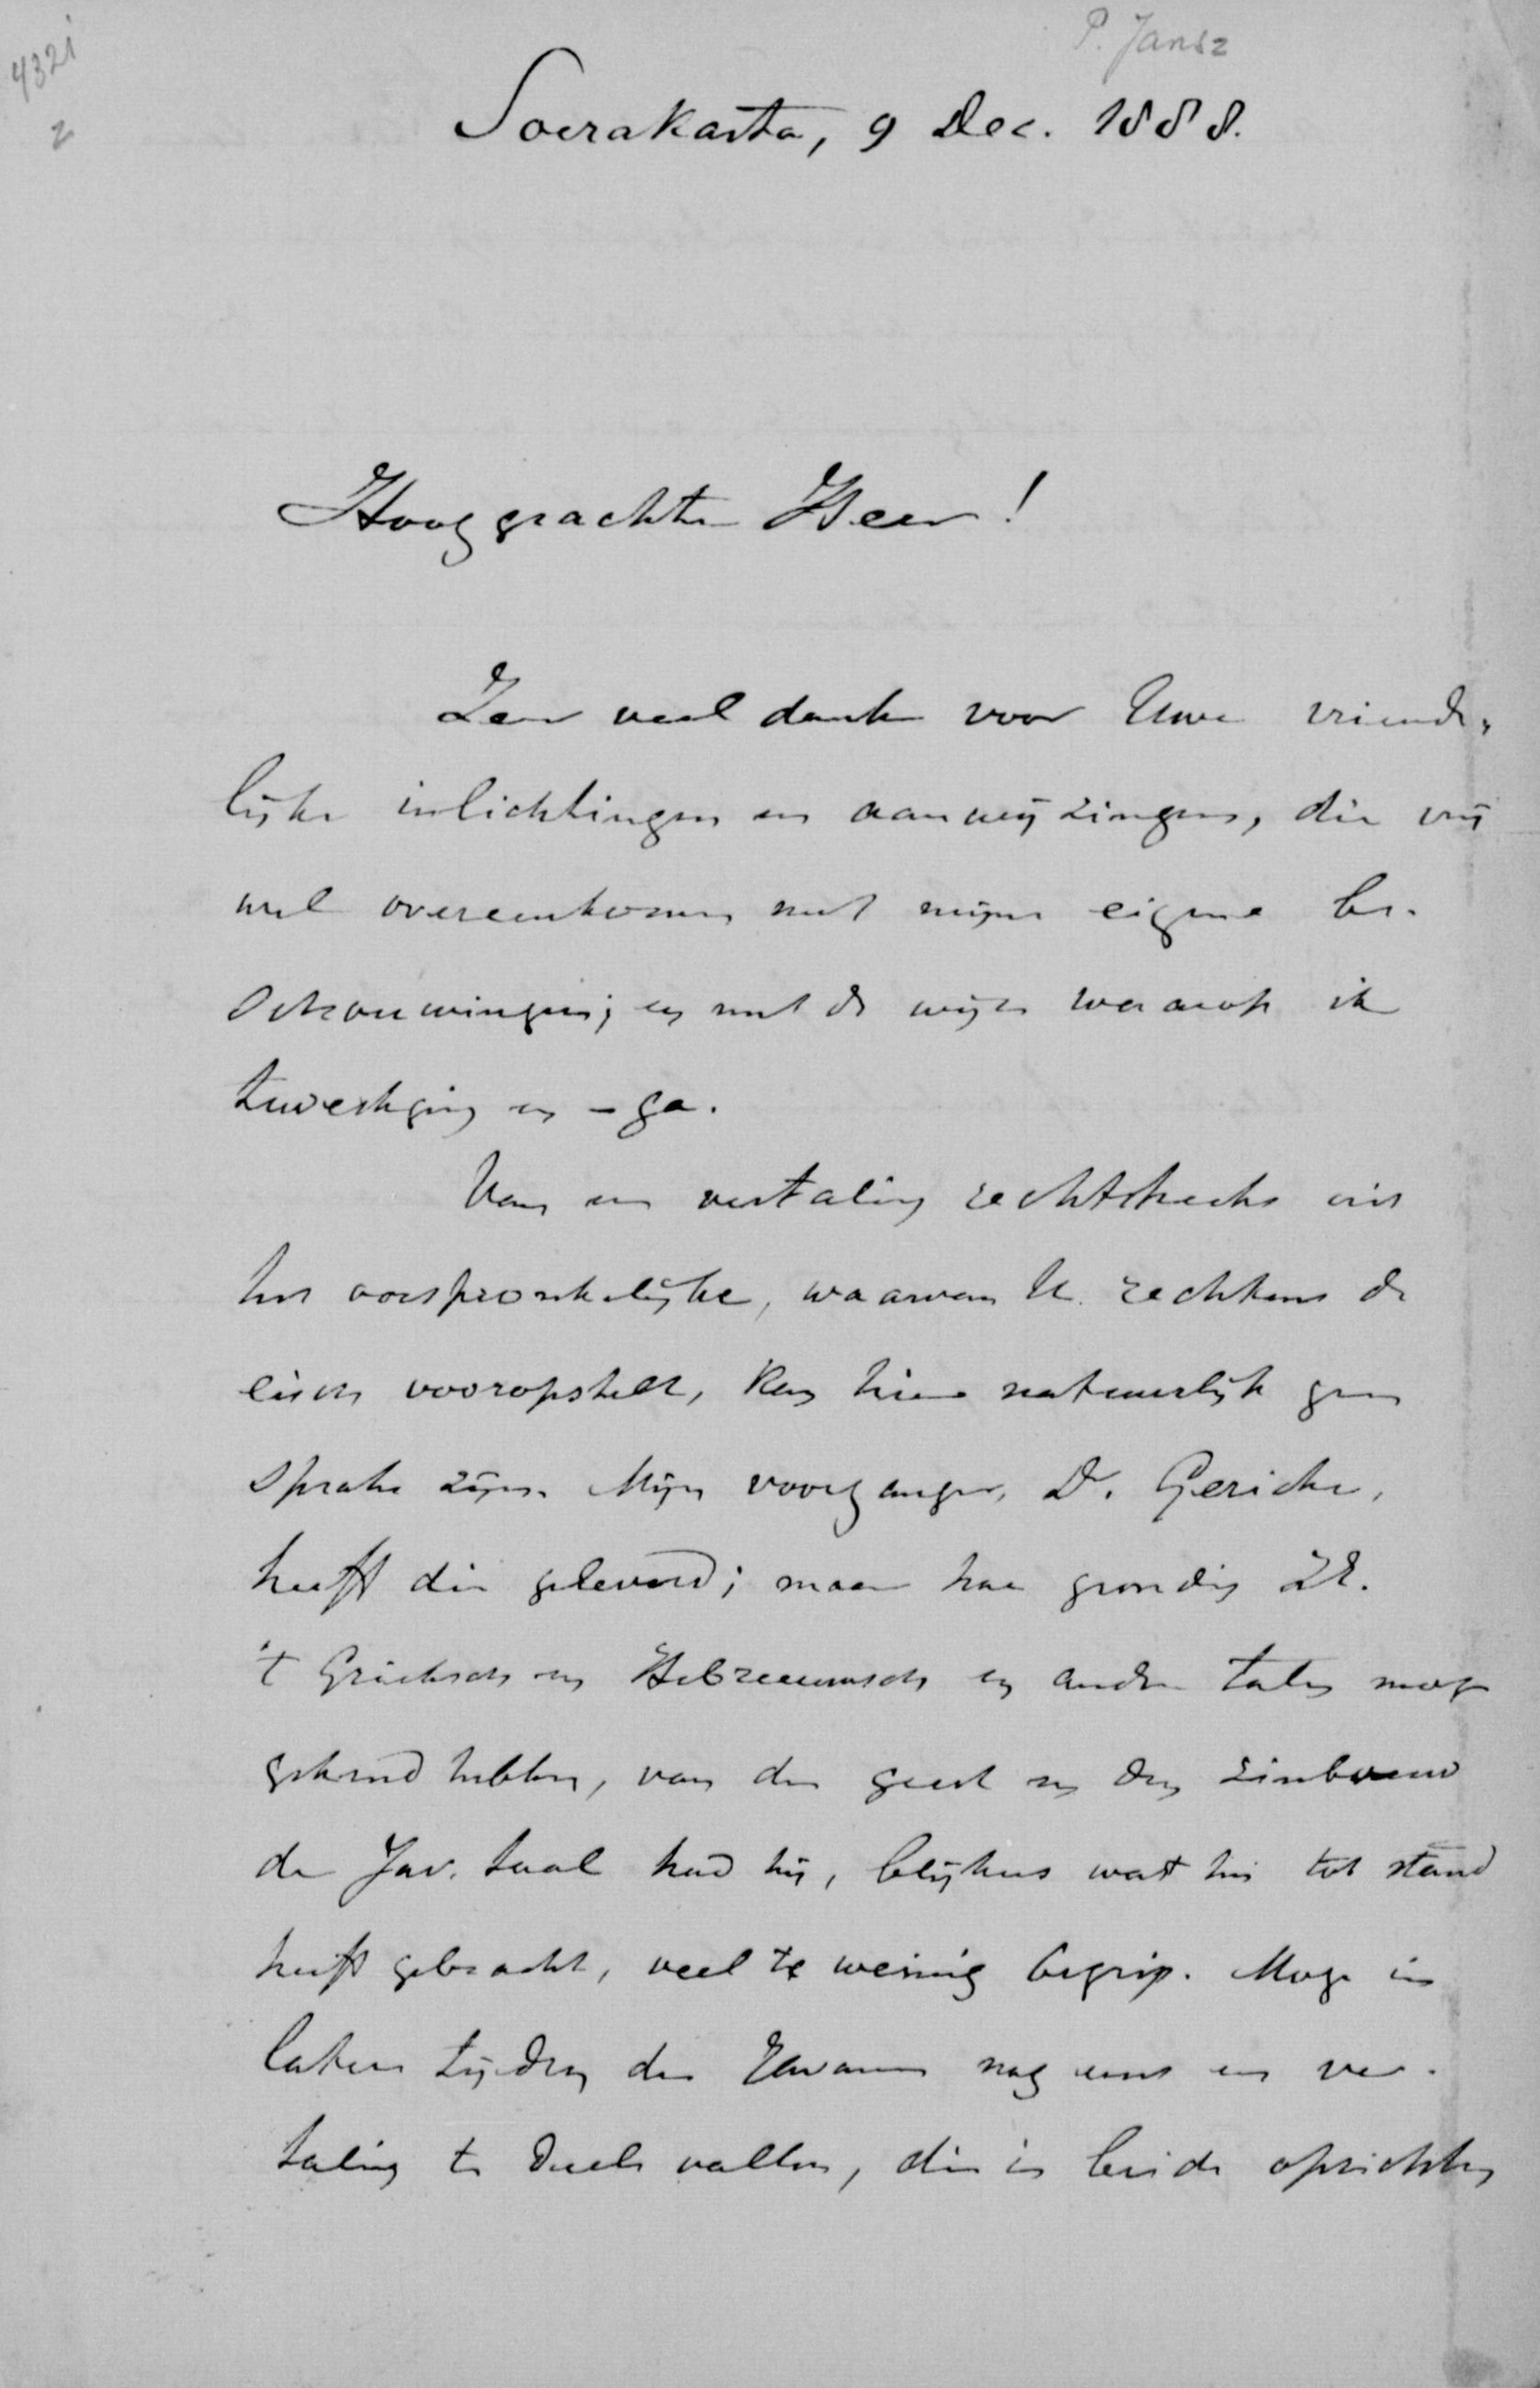 4321
2
P. Jansz
Soerakarta, 9 Dec. 1888.
Hooggeachte Heer!
Zeer veel dank voor Uwe vriende-
lijke inlichtingen en aanwijzingen, die vrij
wel overeenkomen met mijne eigene be-
schouwingen, en met de wijze waarop ik
tewerkging en -ga.
Van een vertaling rechtstreeks uit
het oorspronkelijke, waarvan U. rechtens de
eisch vooropstelt, kan hier natuurlijk geen
sprake zijn. Mijn voorganger, Dr. Gericke,
heeft die geleverd; maar hoe grondig ZE.
't Grieksch en Hebreeuwsch en andere talen moge
gekend hebben, van den geest en den zinbouw
der Jav. taal had hij, blijkens wat hij tot stand
heeft gebracht, veel te weinig begrip. Moge in
latere tijden den Javaan nog eens een ver-
taling ten deele vallen, die in beide opzichten